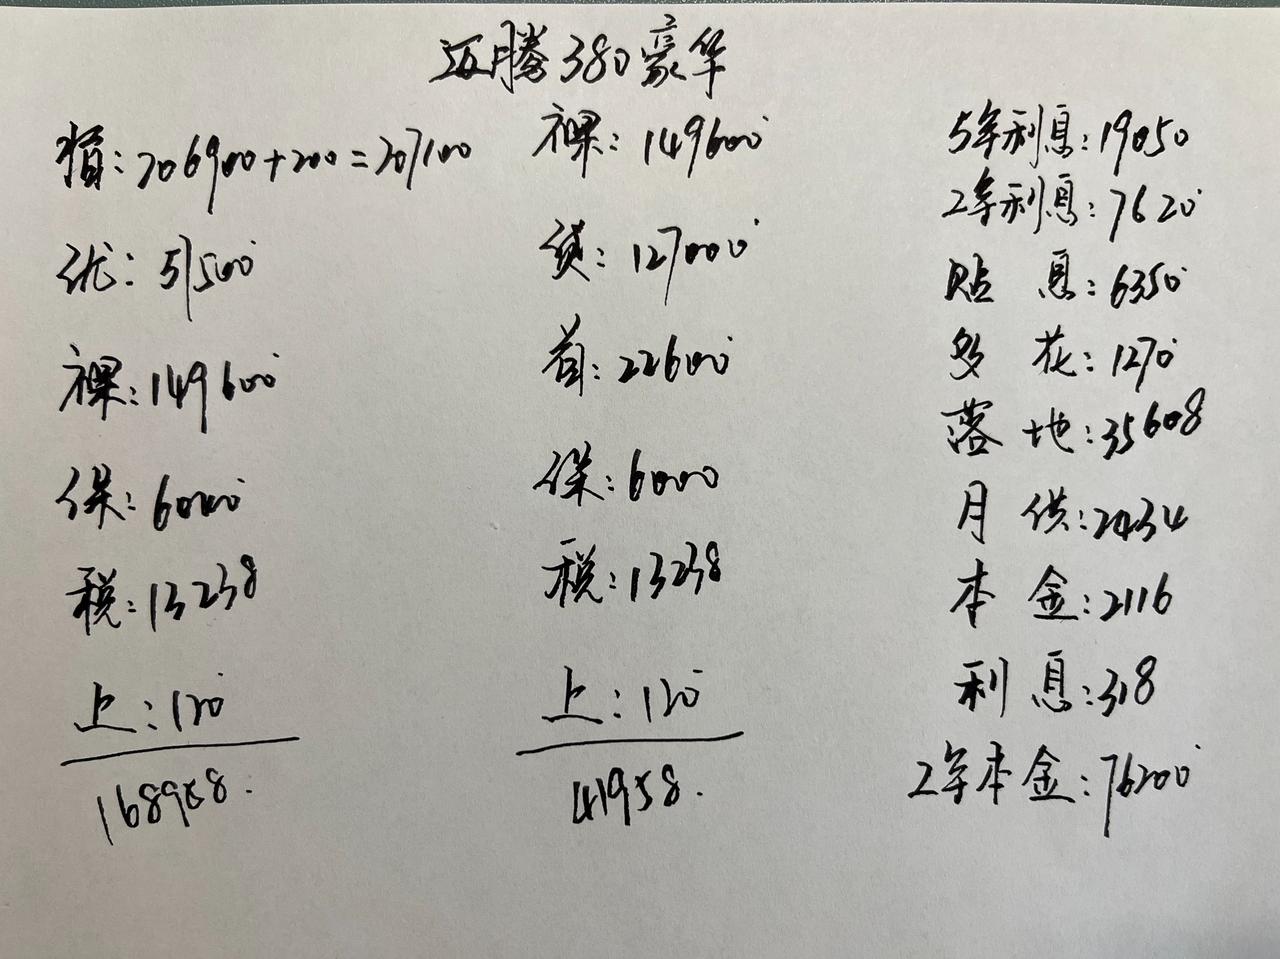 迈腾380豪华
指:206900+200=207100
优:57500
裸:149600
保:6000
税:13238
上:120
168958.
裸:149600
贷:127000
首:22600
保:6000
税:13238
上:120
41958.
5年利息:19050
2年利息:7620
贴 息:6350
多 花:1270
落 地:35608
月 供:2434
本 金:2116
利 息:318
2年本金:76200